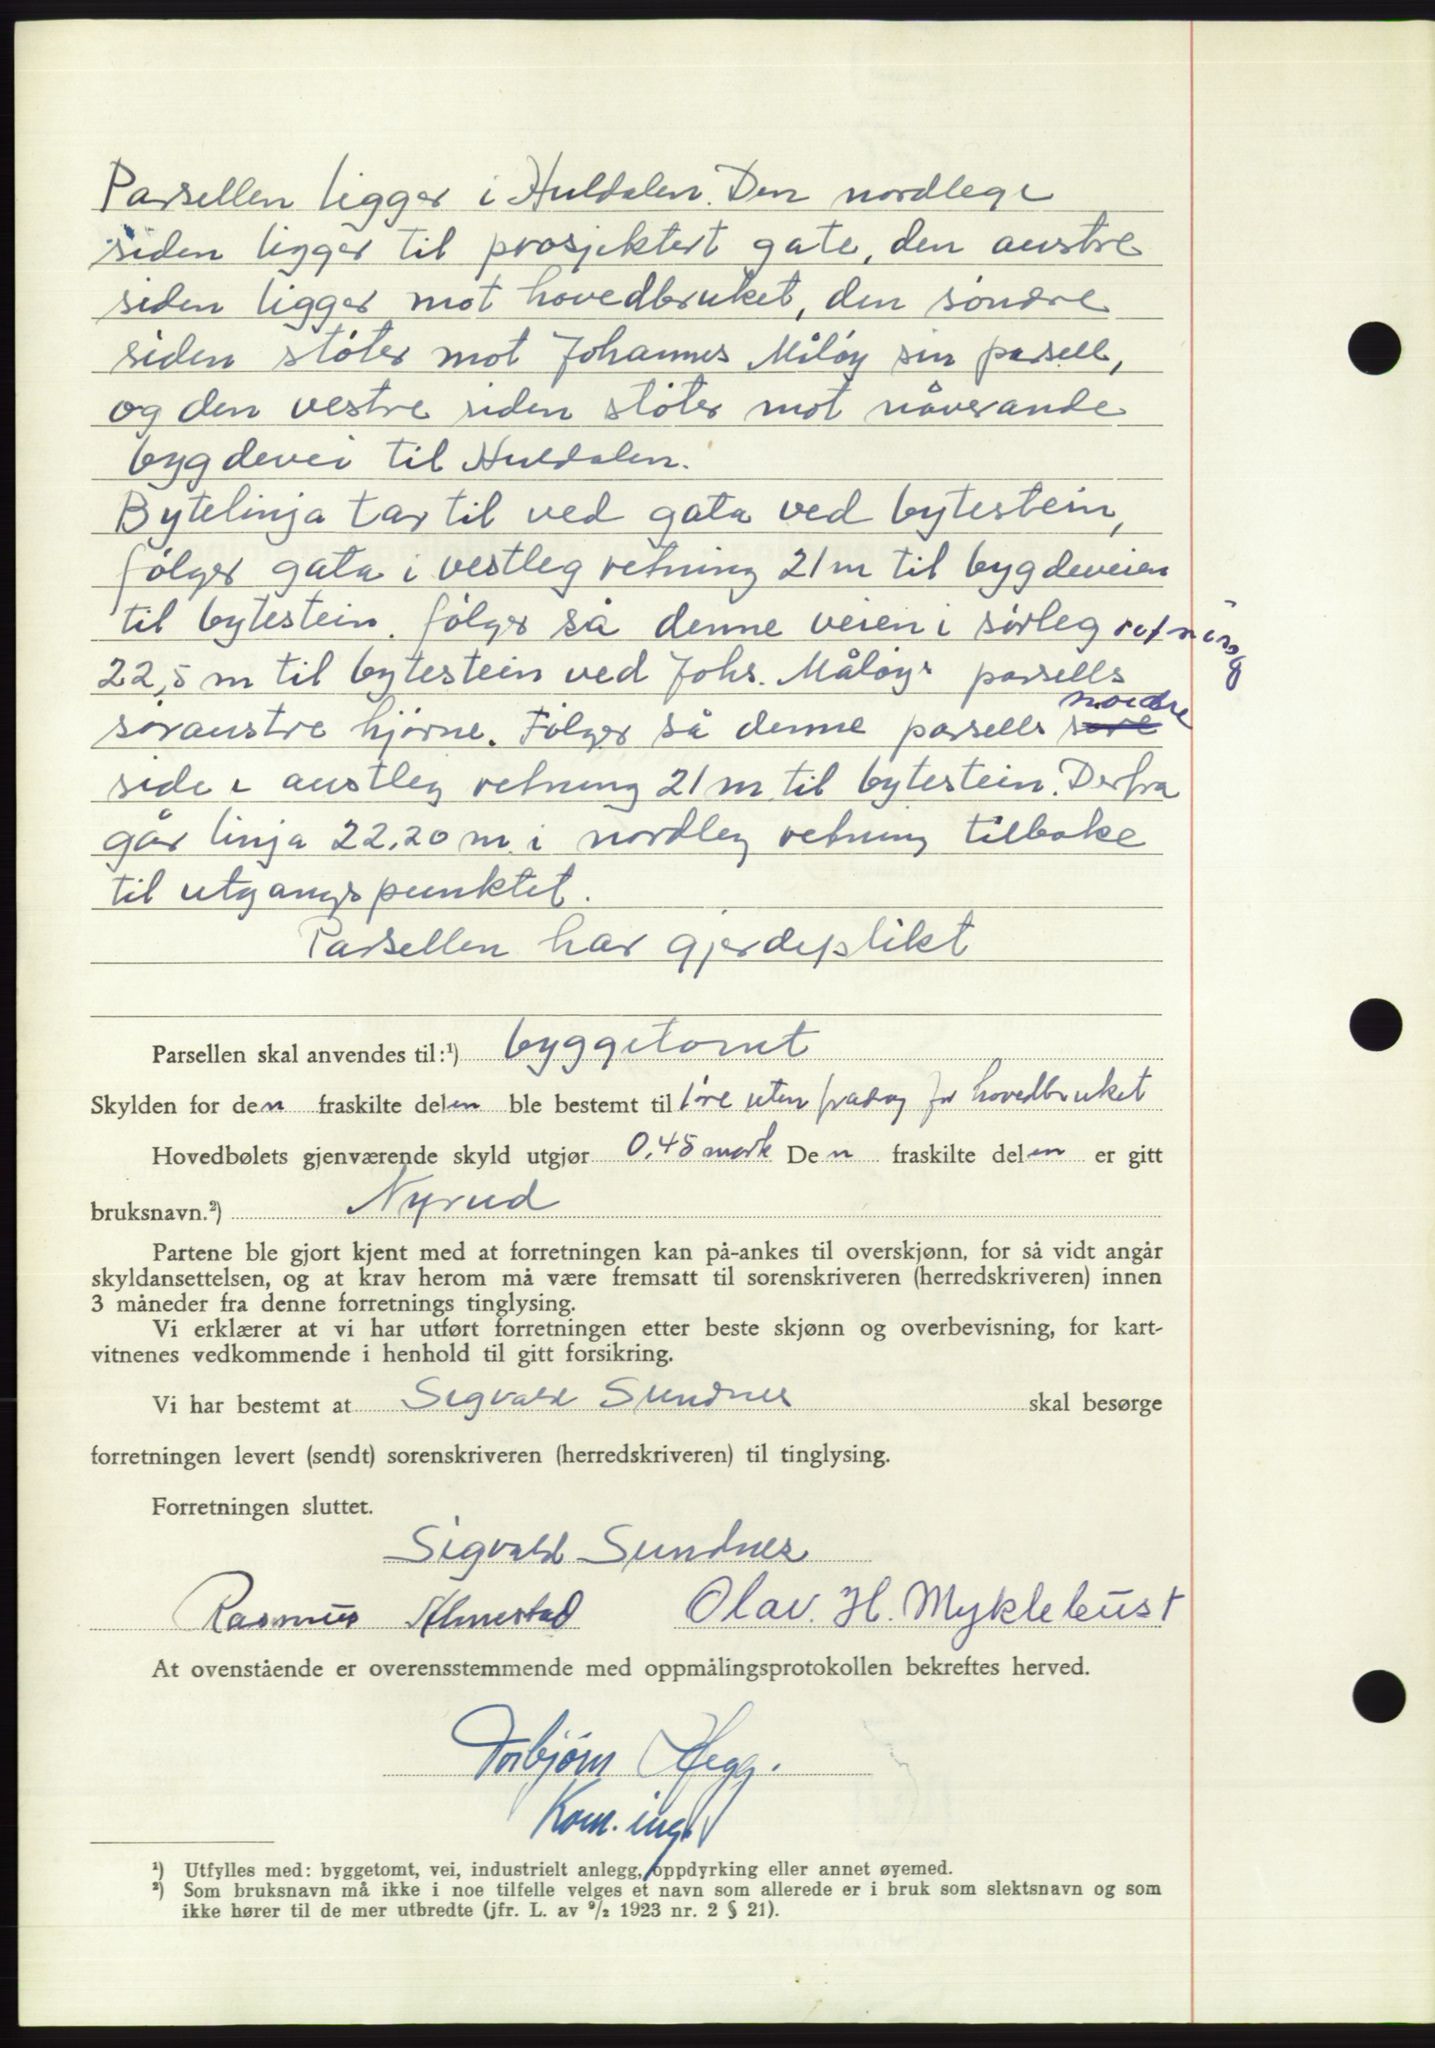 Parsellen ligger i Huldalen. Den nordlege
siden ligger til prosjektert gate, den austre
siden ligger mot hovedbruket, den søndre
siden støter mot Johannes Måløy sin parsell,
og den vestre siden støter mot nåverande
bygdevei til Huldalen.
Bytelinja tar til ved gata ved bytestein,
følger gata i vestleg retning 21 m til bygdeveien
til bytestein. følger så denne veien i sørleg retning
22,5 m til bytestein ved Johs. Måløys parsells
nordre
søraustre hjørne. Følger så denne parsells søre
side i austleg retning 21 m til bytestein. Derfra
går linja 22,20 m. i nordleg retning tilbake
til utgangspunktet.
Parsellen har gjerdeplikt
Parsellen skal anvendes til:¹) byggetomt
Skylden for den fraskilte delen ble bestemt til 1 øre uten fradrag for hovedbruket
Hovedbølets gjenværende skyld utgjør 0,45 mark Den fraskilte delen er gitt
bruksnavn.²) Nyrud
Partene ble gjort kjent med at forretningen kan på-ankes til overskjønn, for så vidt angår
skyldansettelsen, og at krav herom må være fremsatt til sorenskriveren (herredskriveren) innen
3 måneder fra denne forretnings tinglysing.
Vi erklærer at vi har utført forretningen etter beste skjønn og overbevisning, for kart-
vitnenes vedkommende i henhold til gitt forsikring.
Vi har bestemt at Sigvald Sundnes skal besørge
forretningen levert (sendt) sorenskriveren (herredskriveren) til tinglysing.
Forretningen sluttet.
Sigvald Sundnes
Rasmus Almestad Olav. H. Myklebust
At ovenstående er overensstemmende med oppmålingsprotokollen bekreftes herved.
Torbjørn Hegg.
Kom. ing.
¹) Utfylles med: byggetomt, vei, industrielt anlegg, oppdyrking eller annet øyemed.
²) Som bruksnavn må ikke i noe tilfelle velges et navn som allerede er i bruk som slektsnavn og som
ikke hører til de mer utbredte (jfr. L. av ⁹/₂ 1923 nr. 2 § 21).